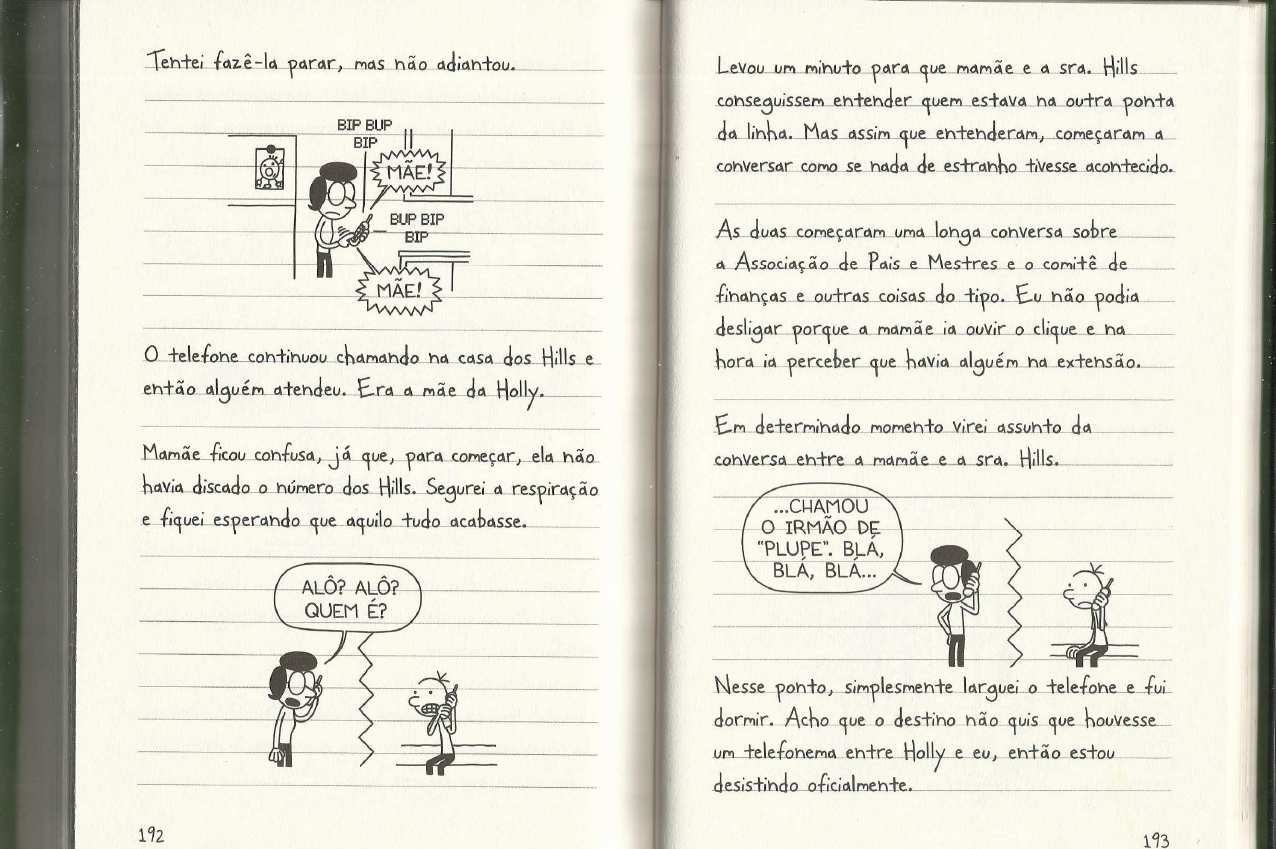 Tentei fazê-la parar, mas não adiantou.
BIP BUP
BIP
MÃE!
BUP BIP
BIP
MÃE!
O telefone continuou chamando na casa dos Hills e
então alguém atendeu. Era a mãe da Holly.
Mamãe ficou confusa, já que, para começar, ela não
havia discado o número dos Hills. Segurei a respiração
e fiquei esperando que aquilo tudo acabasse.
ALÔ? ALÔ?
QUEM É?
192
Levou um minuto para que mamãe e a sra. Hills
conseguissem entender quem estava na outra ponta
da linha. Mas assim que entenderam, começaram a
conversar como se nada de estranho tivesse acontecido.
As duas começaram uma longa conversa sobre
a Associação de Pais e Mestres e o comitê de
finanças e outras coisas do tipo. Eu não podia
desligar porque a mamãe ia ouvir o clique e na
hora ia perceber que havia alguém na extensão.
Em determinado momento virei assunto da
conversa entre a mamãe e a sra. Hills.
...CHAMOU
O IRMÃO DE
"PLUPE". BLÁ,
BLÁ, BLÁ...
Nesse ponto, simplesmente larguei o telefone e fui
dormir. Acho que o destino não quis que houvesse
um telefonema entre Holly e eu, então estou
desistindo oficialmente.
193